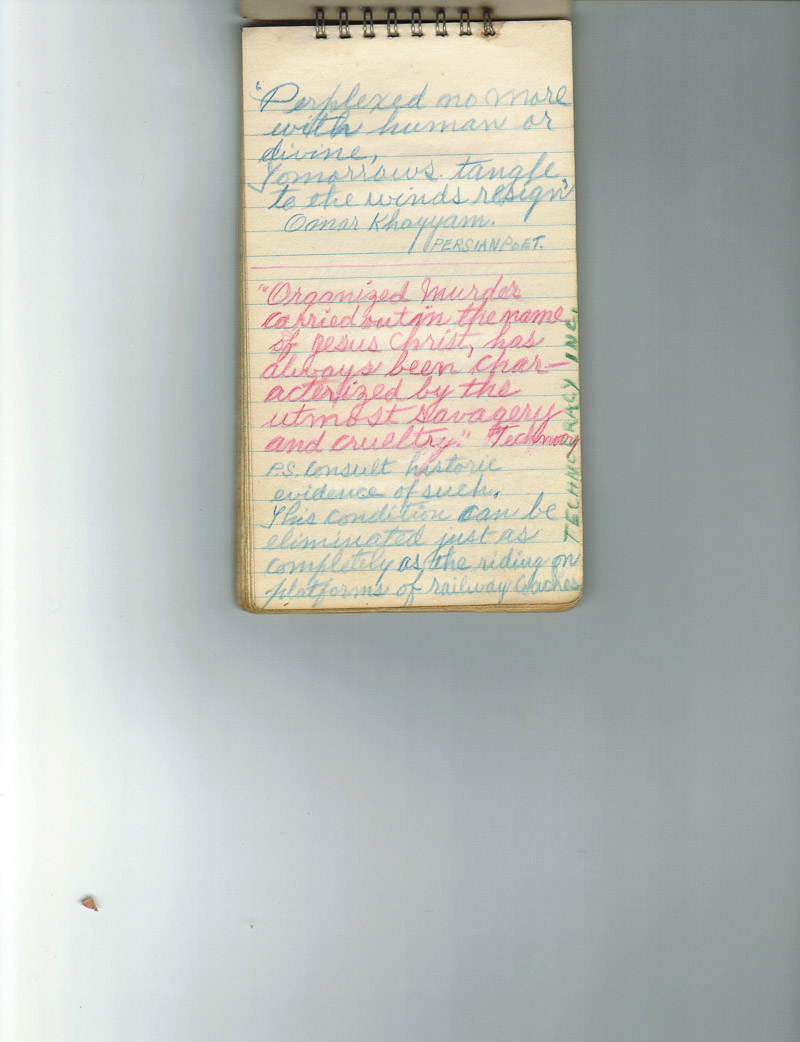 "Perplexed no more
with human or
divine,
Tomorrows tangle
to the winds resign"
Omar Khayyam.
PERSIAN POET.
"Organized Murder
carried out in the name
of Jesus Christ, has
always been char-
acterized by the
utmost savagery
and crueltry." Technocracy
P.S. Consult historic
evidence of such.
This condition can be
eliminated just as
completely as the riding on
platforms of railway coaches
TECHNOCRACY INC.